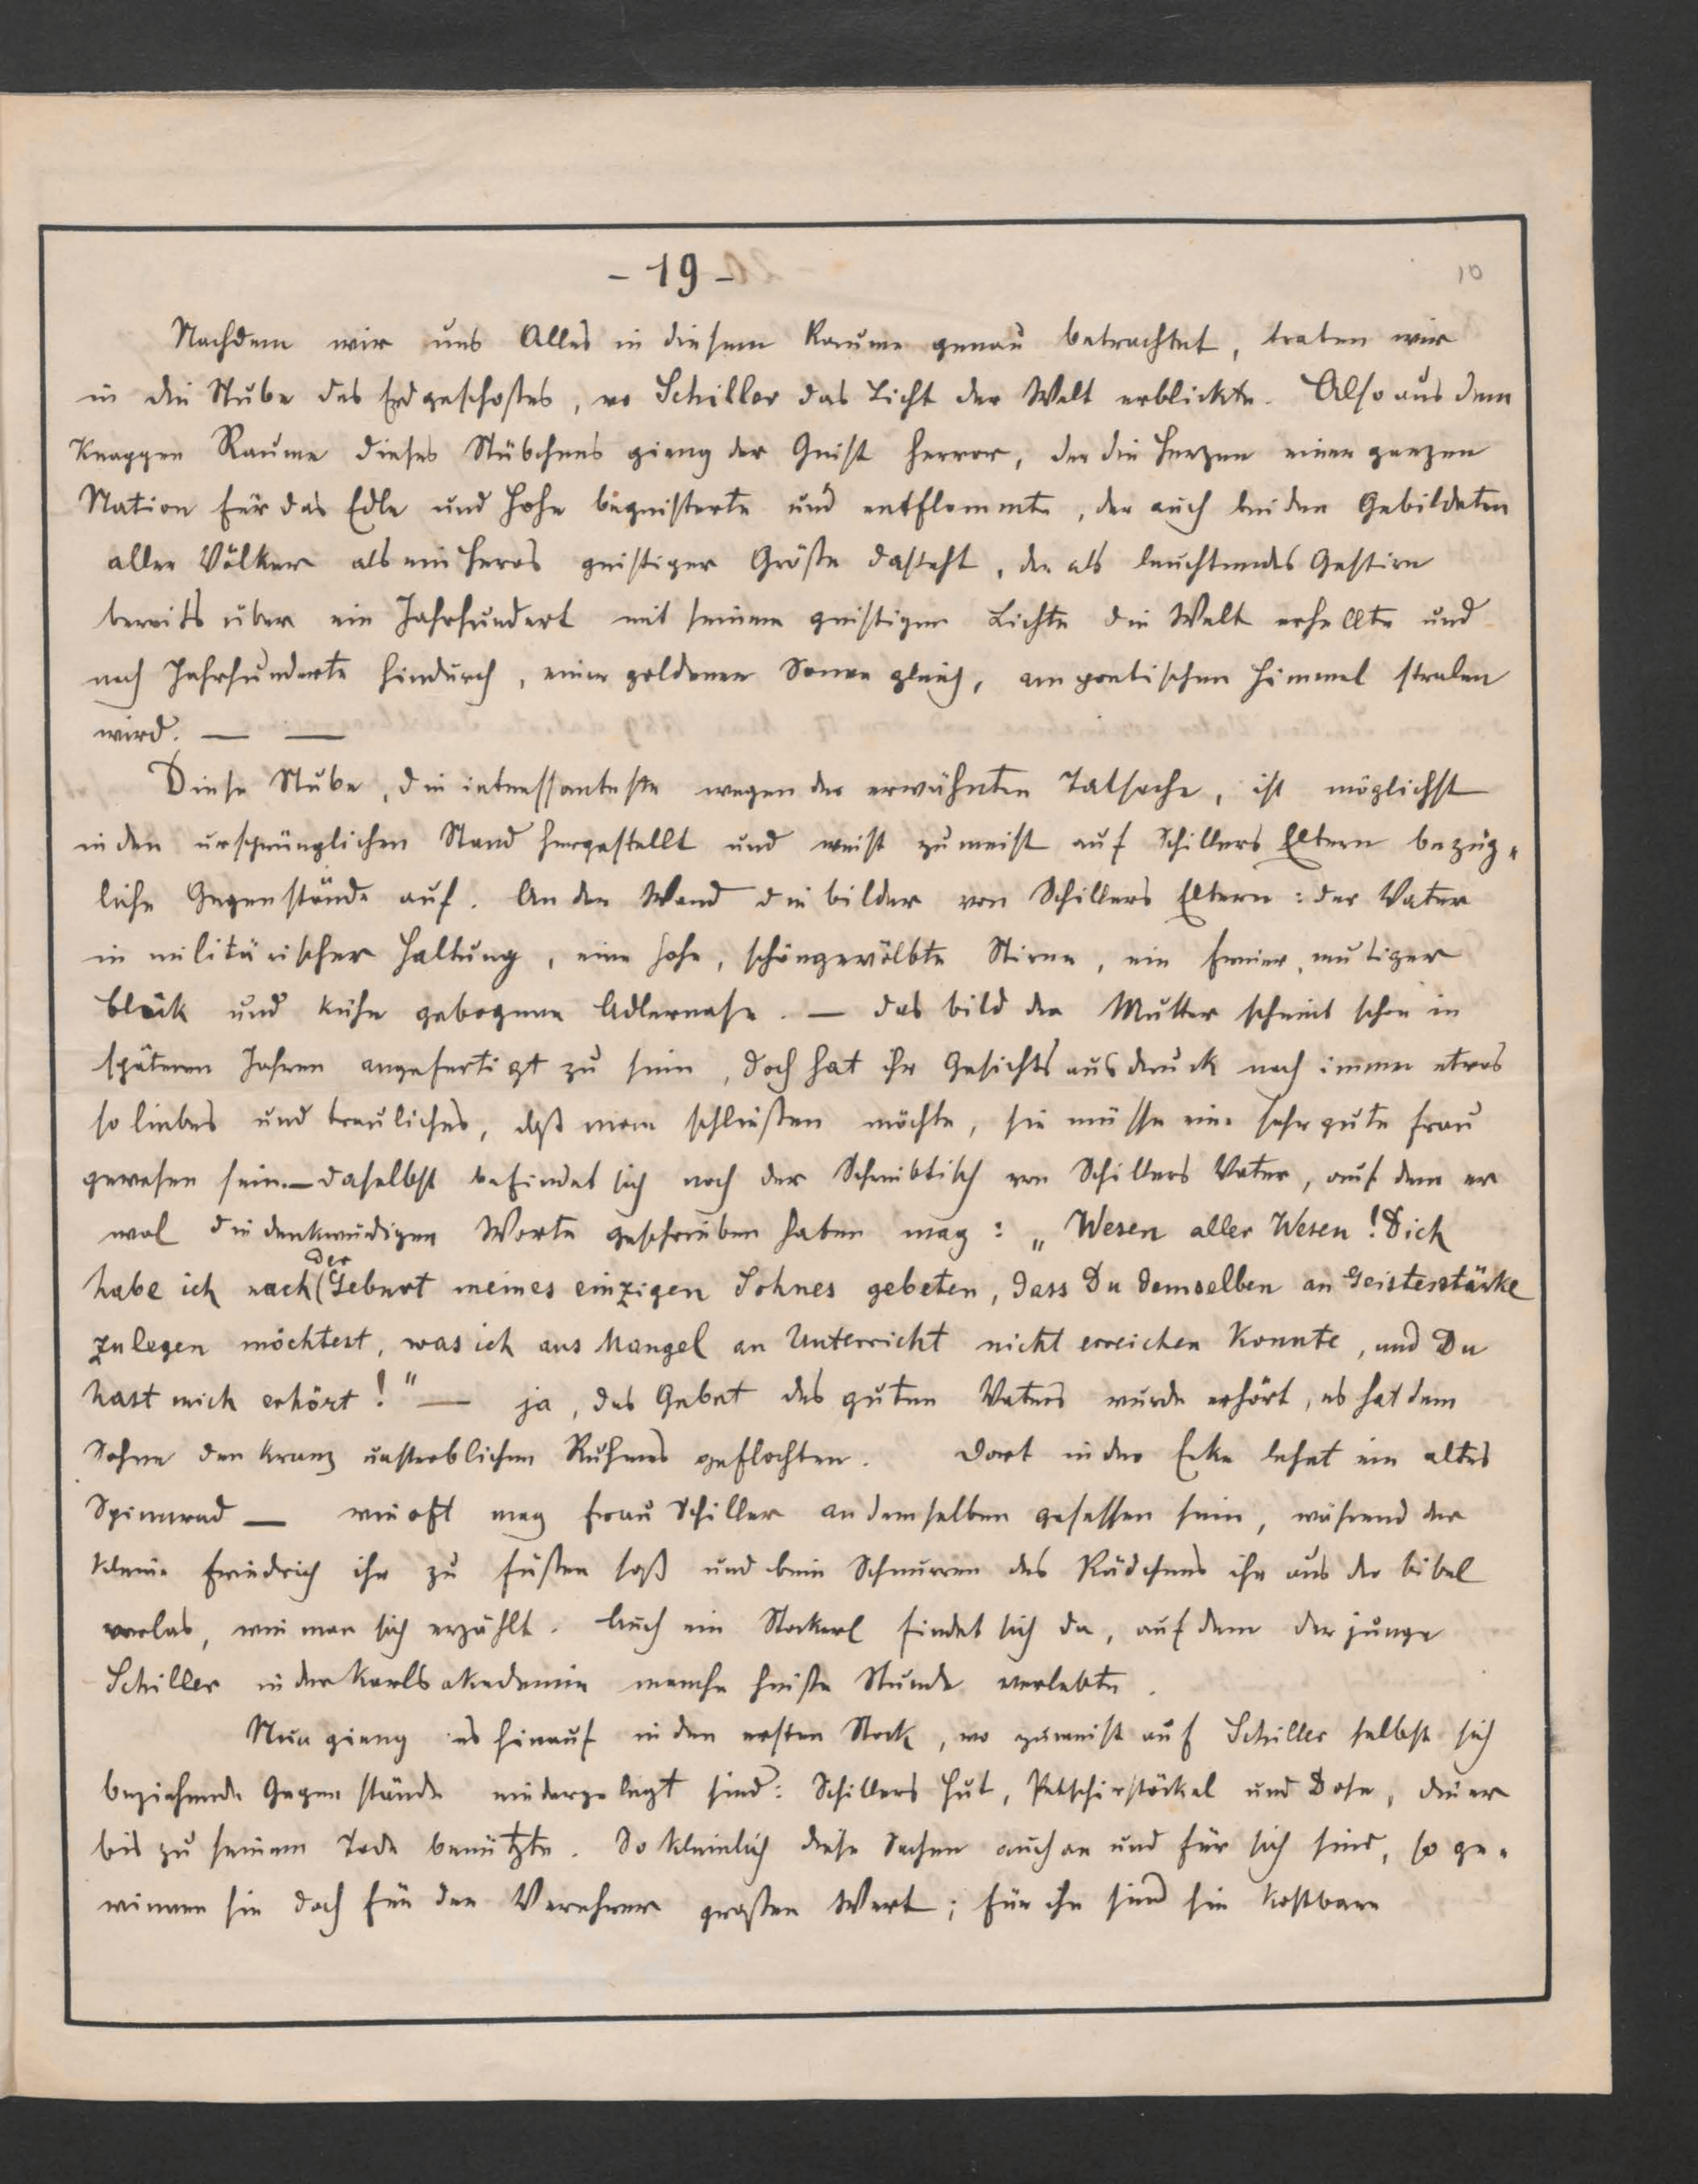 - 19 -
10
Nachdem wir uns Alles in diesem Raume genau betrachtet, traten wir
in die Stube des Erdgeschoßes, wo Schiller das Licht der Welt erblickte. Also aus dem
knappen Raume dieses Stübchens gieng der Geist hervor, der die Herzen einer ganzen
Nation für das Edle und Hohe begeisterte und entflammte, der auch bei den Gebildeten
aller Völker als ein Heros geistiger Größe dasteht, der als leuchtendes Gestirn
bereits über ein Jahrhundert mit seinem geistigen Lichte die Welt erhellte und
noch Jahrhunderte hindurch, einer goldenen Sonne gleich, am poetischen Himmel stralen
wird. — —
Diese Stube, die interessanteste wegen der erwähnten Tatsache, ist möglichst
in den ursprünglichen Stand hergestellt und weist zumeist auf Schillers Eltern bezüg-
liche Gegenstände auf. An der Wand die Bilder von Schillers Eltern: der Vater
in militärischer Haltung, eine hohe, schöngewölbte Stirne, ein freier, mutiger
Blick und kühn gebogene Adlernase. — Das Bild der Mutter scheint schon in
späteren Jahren angefertigt zu sein, doch hat ihr Gesichtsausdruck noch immer etwas
so liebes und trauliches, daß man schließen möchte, sie müsse eine sehr gute Frau
gewesen sein. — Daselbst befindet sich noch der Schreibtisch von Schillers Vater, auf dem er
wol die denkwürdigen Worte geschrieben haben mag: „Wesen aller Wesen! Dich
habe ich nach der Geburt meines einzigen Sohnes gebeten, dass Du demselben an Geistesstärke
zulegen möchtest, was ich aus Mangel an Unterricht nicht erreichen konnte, und Du
hast mich erhört!" — ja, das Gebet des guten Vaters wurde erhört, es hat dem
Sohne den Kranz unsterblichen Ruhmes geflochten. Dort in der Ecke lehnt ein altes
Spinnrad — wie oft mag Frau Schiller an demselben gesessen sein, während der
kleine Friedrich ihr zu Füßen saß und beim Schnurren des Rädchens ihr aus der Bibel
vorlas, wie man sich erzählt. Auch ein Stockerl findet sich da, auf dem der junge
Schiller in der Karlsakademie manche heiße Stunde verlebte.
Nun gieng es hinauf in den ersten Stock, wo zumeist auf Schiller selbst sich
beziehende Gegenstände niedergelegt sind: Schillers Hut, Petschirstöckel und Dose, die er
bis zu seinem Tode benützte. So kleinlich diese Sachen auch an und für sich sind, so ge-
winnen sie doch für den Verehrer großen Wert; für ihn sind sie kostbare